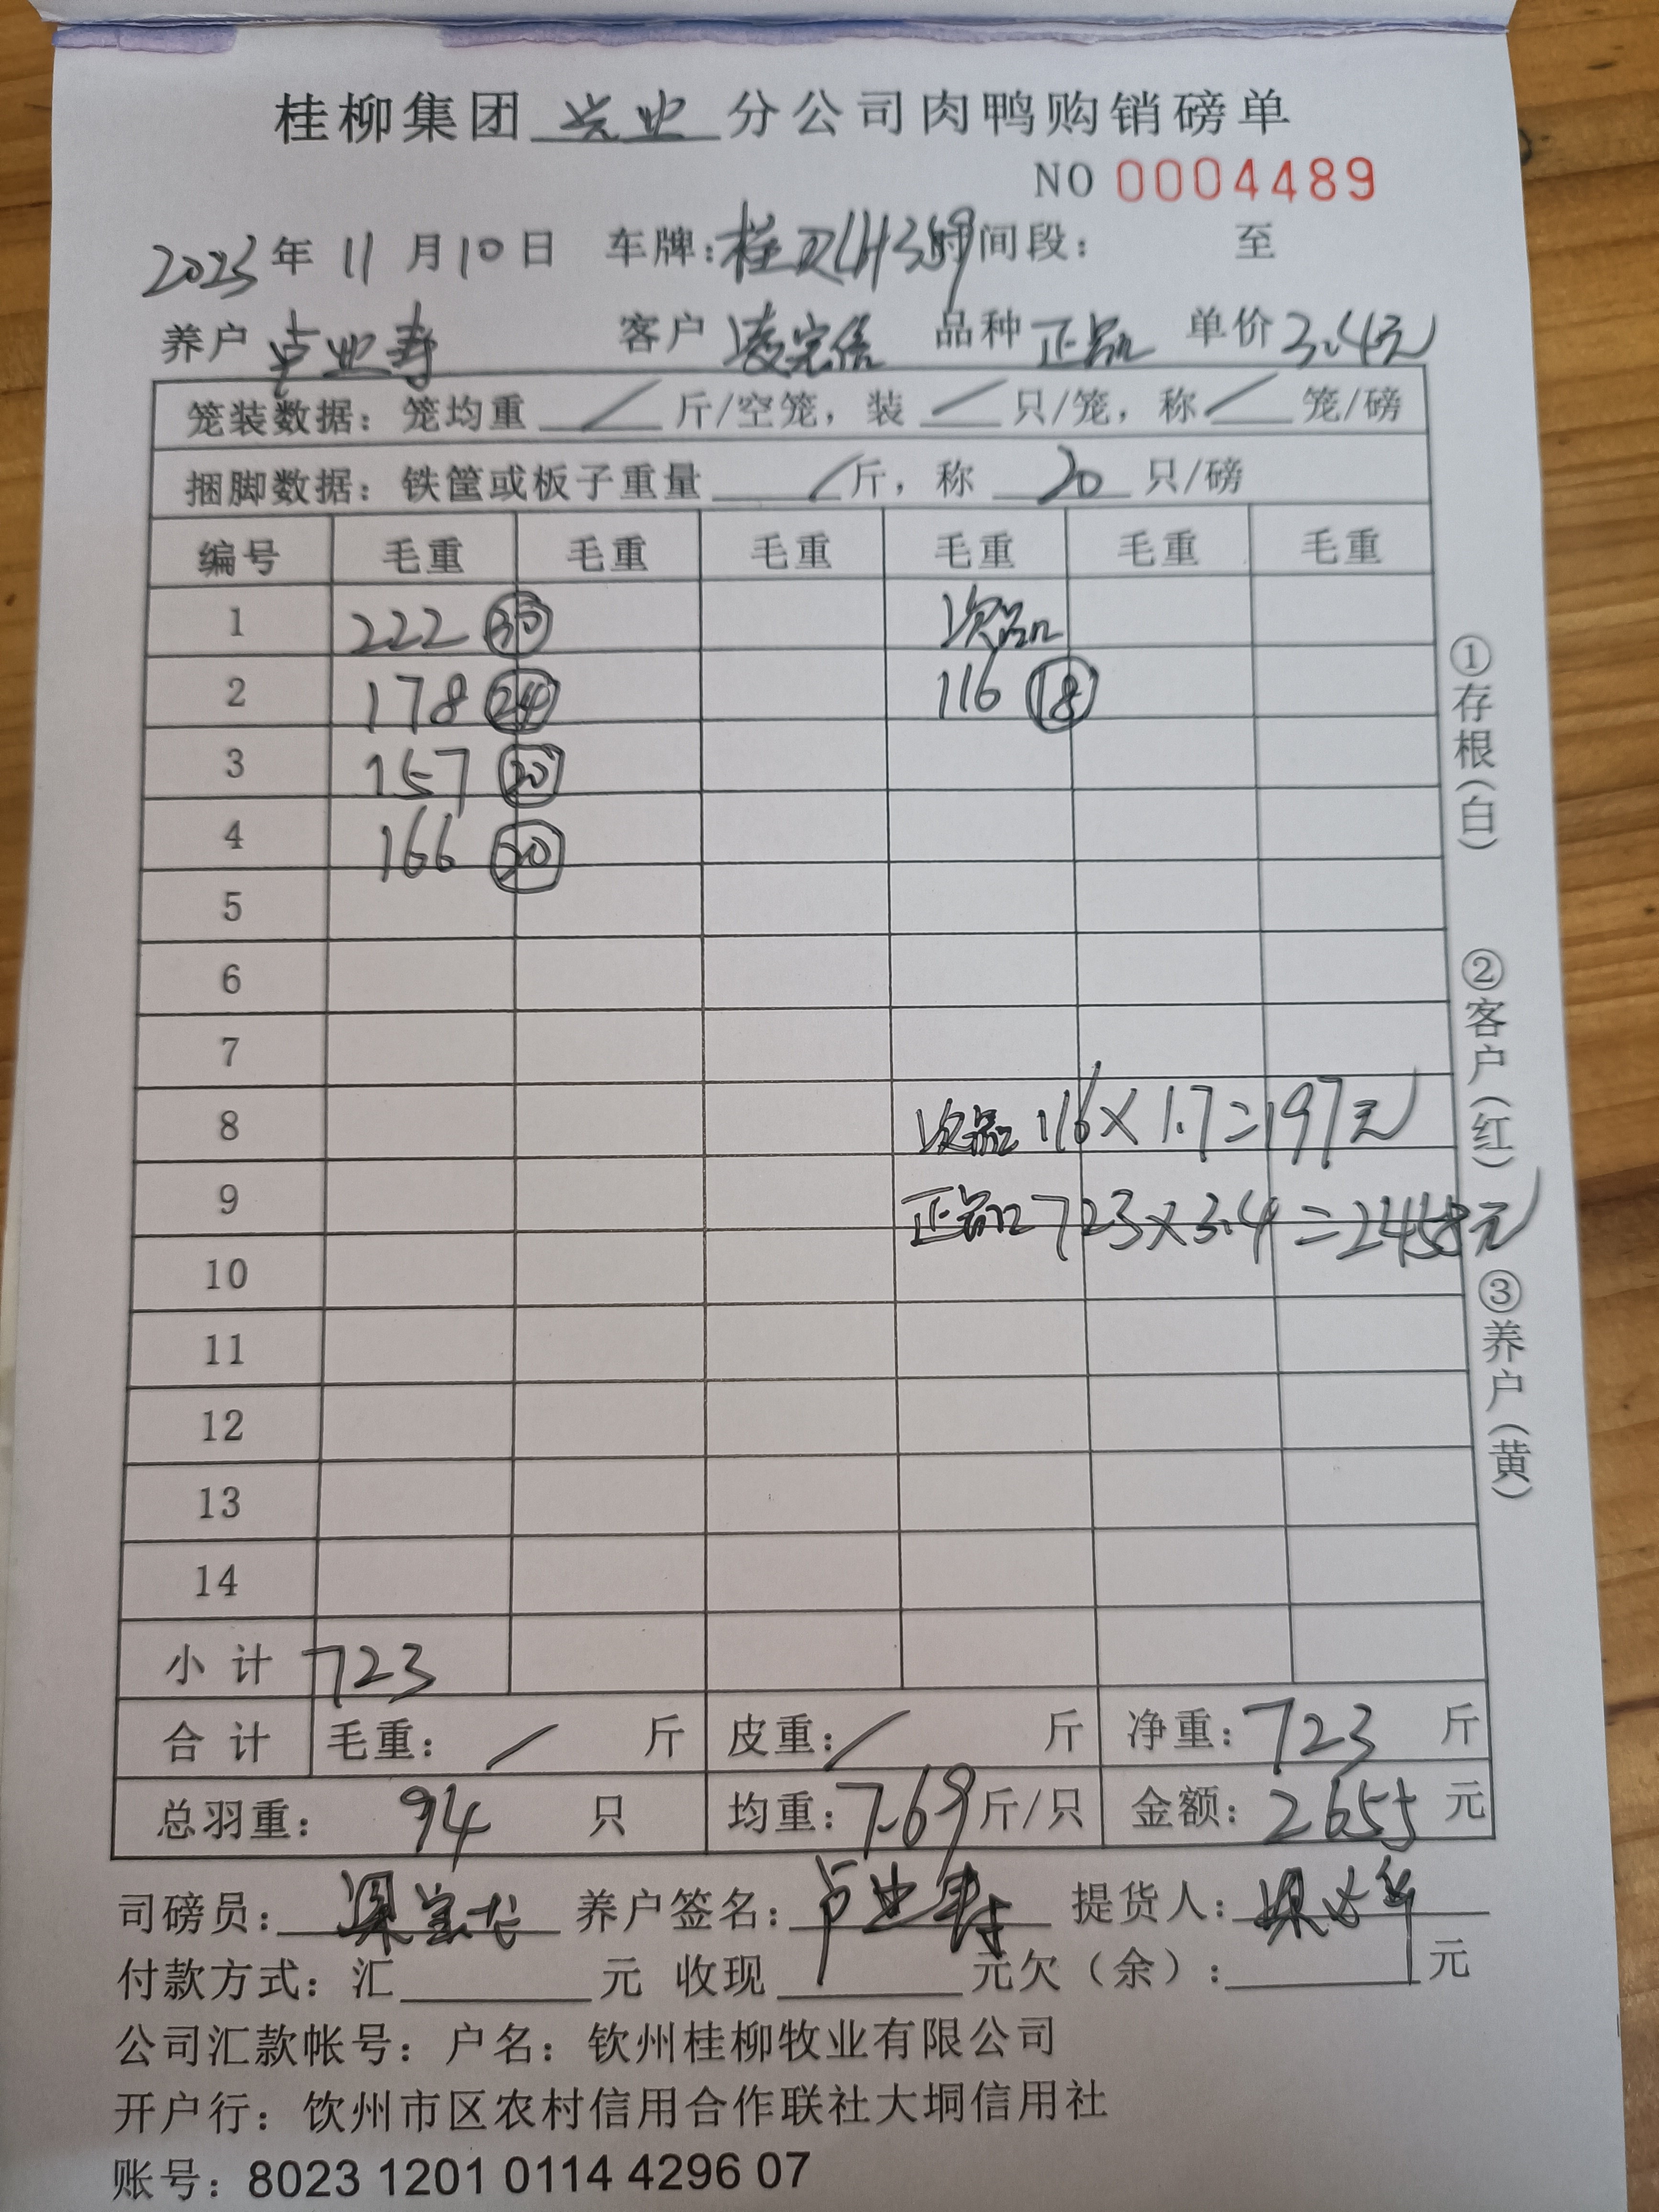 桂柳集团 兴业 分公司肉鸭购销磅单
NO 0004489
2023年 11 月 10 日 车牌: 桂 时间段: 至
养户 卢业寿 客户 凌宗信 品种 正品 单价 3.4元
笼装数据: 笼均重 / 斤/空笼, 装 / 只/笼, 称 / 笼/磅
捆脚数据: 铁筐或板子重量 / 斤, 称 20 只/磅
编号 毛重 毛重 毛重 毛重 毛重 毛重
1 222 ㉚ 次品
2 178 ㉔ 116 ⑱
3 157 ⑳
4 166 ⑳
5
6
7
8 次品 116×1.7=197元
9 正品 723×3.4=2458元
10
11
12
13
14
小计 723
合计 毛重: / 斤 皮重: / 斤 净重: 723 斤
总羽重: 94 只 均重: 7.69 斤/只 金额: 2655 元
司磅员: 养户签名: 卢业寿 提货人:
付款方式: 汇 元 收现 元欠(余): 元
公司汇款帐号: 户名: 钦州桂柳牧业有限公司
开户行: 饮州市区农村信用合作联社大垌信用社
账号: 8023 1201 0114 4296 07
①存根(白) ②客户(红) ③养户(黄)